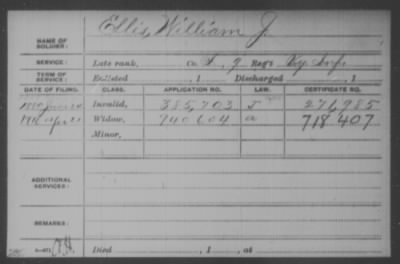 NAME OF SOLDIER: Ellis, William J.
SERVICE: Late rank, Co. F, 9 Reg't Ky. Inf.
TERM OF SERVICE: Enlisted , 1 Discharged , 1
DATE OF FILING. CLASS. APPLICATION NO. LAW. CERTIFICATE NO.
1880 Invalid, 385,703 271,985
Widow, 740604 a 718,407
Minor,
ADDITIONAL SERVICES:
REMARKS:
Died , 1 , at